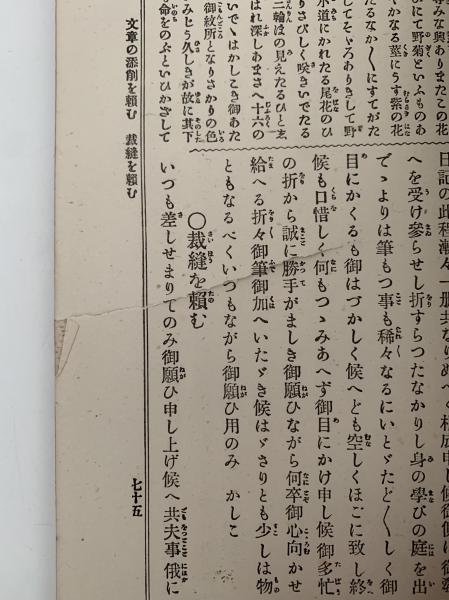 尊みな興ありまたこの花
にて野菊といふものあ
くかなる莖にうす紫の花
たるなか〳〵にすてがた
してそゞろありきして野
水道にかれたる尾花のひ
りさびしく咲きいでたる
三輪ほの見えたるひと本
はれ深しあまさへ十六の
いでゝはかしこき御あた
御紋所となりさかりの色
みとう久しきが故に其下
命をのぶといひかざして
日記の此程漸々一册
へを受け參らせし折すらつたなかりし身の學びの庭を出
でゝよりは筆もつ事も稀々なるにいとゞたど〳〵しく御
目にかくるも御はづかしく候へども空しくほごに致し終
候も口惜しく何もつゝみあへず御目にかけ申し候御多忙
の折から誠に勝手がましき御願ひながら何卒御心向かせ
給へる折々御筆御加へいたゞき候はゞさりとも少しは物
ともなるべくいつもながら御願ひ用のみ　かしこ
〇裁縫を賴む
いつも差しせまりてのみ御願ひ申し上げ候へ共夫事俄に
文章の添削を賴む　裁縫を賴む
七十五